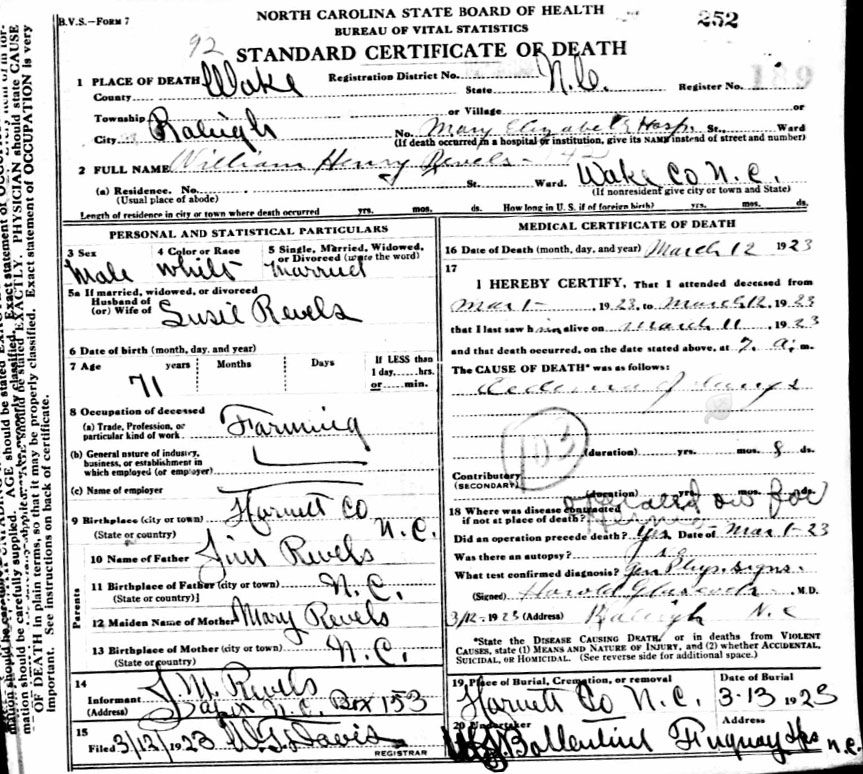 B.V.S.—Form 7
NORTH CAROLINA STATE BOARD OF HEALTH
BUREAU OF VITAL STATISTICS
252
92
STANDARD CERTIFICATE OF DEATH
189
1 PLACE OF DEATH
County Wake Registration District No. State N.C. Register No.
Township or Village or
City Raleigh No. Mary Elizabeth Hosp. St., Ward
(If death occurred in a hospital or institution, give its NAME instead of street and number)
2 FULL NAME William Henry Revels
(a) Residence. No. St. Ward. Wake Co N.C.
(Usual place of abode) (If nonresident give city or town and State)
Length of residence in city or town where death occurred yrs. mos. ds. How long in U. S. if of foreign birth? yrs. mos. ds.
PERSONAL AND STATISTICAL PARTICULARS
3 Sex 4 Color or Race 5 Single, Married, Widowed, or Divorced (write the word)
Male White Married
5a If married, widowed, or divorced
Husband of
(or) Wife of Susie Revels
6 Date of birth (month, day, and year)
7 Age years Months Days If LESS than
1 day,....hrs.
or.....min.
71
8 Occupation of deceased
(a) Trade, Profession, or
particular kind of work Farming
(b) General nature of industry,
business, or establishment in
which employed (or employer)
(c) Name of employer
9 Birthplace (city or town) Harnett Co
(State or country) N.C.
Parents
10 Name of Father Jim Revels
11 Birthplace of Father (city or town) N.C.
(State or country)
12 Maiden Name of Mother Mary Revels
13 Birthplace of Mother (city or town) N.C.
(State or country)
14
Informant J.M. Revels
(Address) N.C. Box 153
15
Filed 3/12/1923 Davis
REGISTRAR
MEDICAL CERTIFICATE OF DEATH
16 Date of Death (month, day, and year) March 12 1923
17
I HEREBY CERTIFY, That I attended deceased from
Mar 1 , 1923, to March 12, 1923
that I last saw him alive on March 11 , 1923
and that death occurred, on the date stated above, at 7. a. m.
The CAUSE OF DEATH* was as follows:
Oedema of Lungs
103
(duration) yrs. mos. 8 ds.
Contributory
(SECONDARY)
(duration) yrs. mos. ds.
18 Where was disease contracted
if not at place of death? operated on for
Did an operation precede death? Yes. Date of Mar 1-23
Was there an autopsy?
What test confirmed diagnosis? Phys. signs.
(Signed) Harold Glascock , M.D.
3/12-1923 (Address) Raleigh N.C
*State the DISEASE CAUSING DEATH, or in deaths from VIOLENT
CAUSES, state (1) MEANS AND NATURE OF INJURY, and (2) whether ACCIDENTAL,
SUICIDAL, or HOMICIDAL. (See reverse side for additional space.)
19 Place of Burial, Cremation, or removal Date of Burial
Harnett Co N.C. 3-13 1923
20 Undertaker Address
Ballentine Fuquay Spgs N.C.
mation should be carefully supplied. AGE should be stated EXACTLY. PHYSICIAN should state CAUSE
OF DEATH in plain terms, so that it may be properly classified. Exact statement of OCCUPATION is very
important. See instructions on back of certificate.